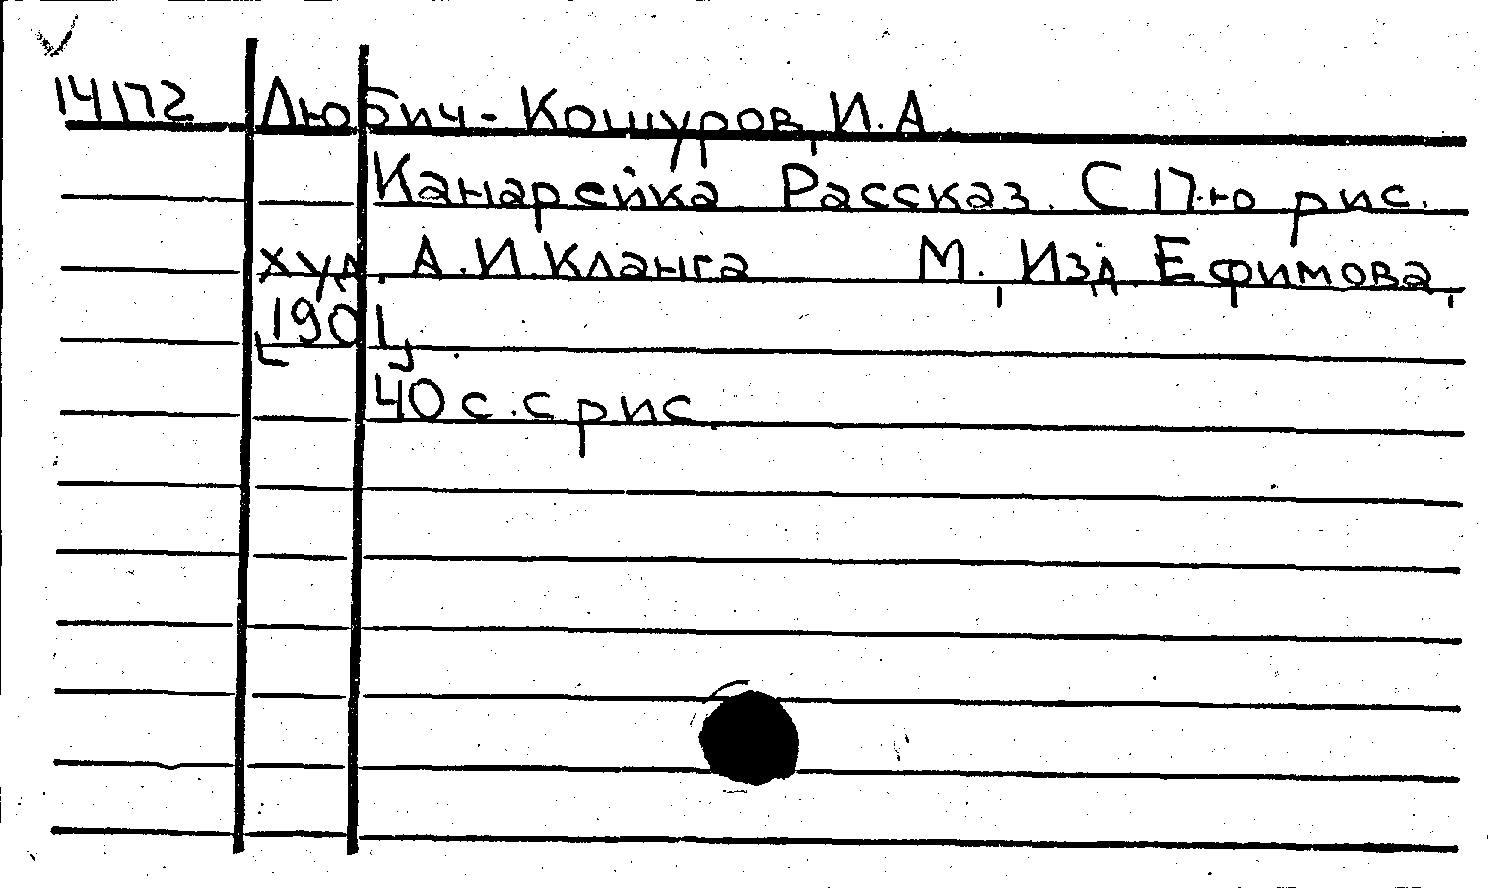 14172 Любич-Кошуров, И.А.
Канарейка. Рассказ. С 17-ю рис.
худ. А.И.Кланга М., Изд. Ефимова,
[1901]
40 с. с рис.